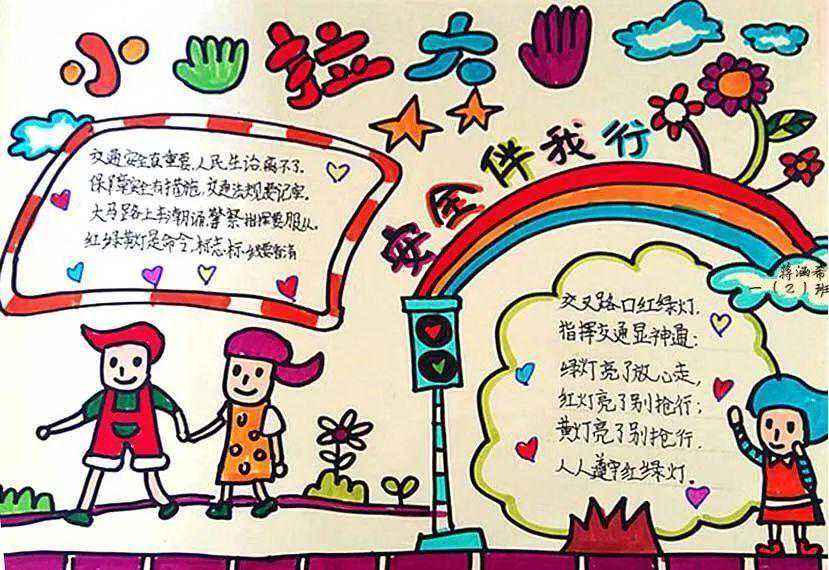 小拉大
安全伴我行
交通安全真重要,人民生活离不了.
保障安全有措施,交通法规要记牢.
大马路上车潮涌,警察指挥要服从.
红绿黄灯是命令,标志标线要看清
蒋涵希
一(2)班
交叉路口红绿灯.
指挥交通显神通;
绿灯亮了放心走,
红灯亮了别抢行;
黄灯亮了别抢行.
人人遵守红绿灯.